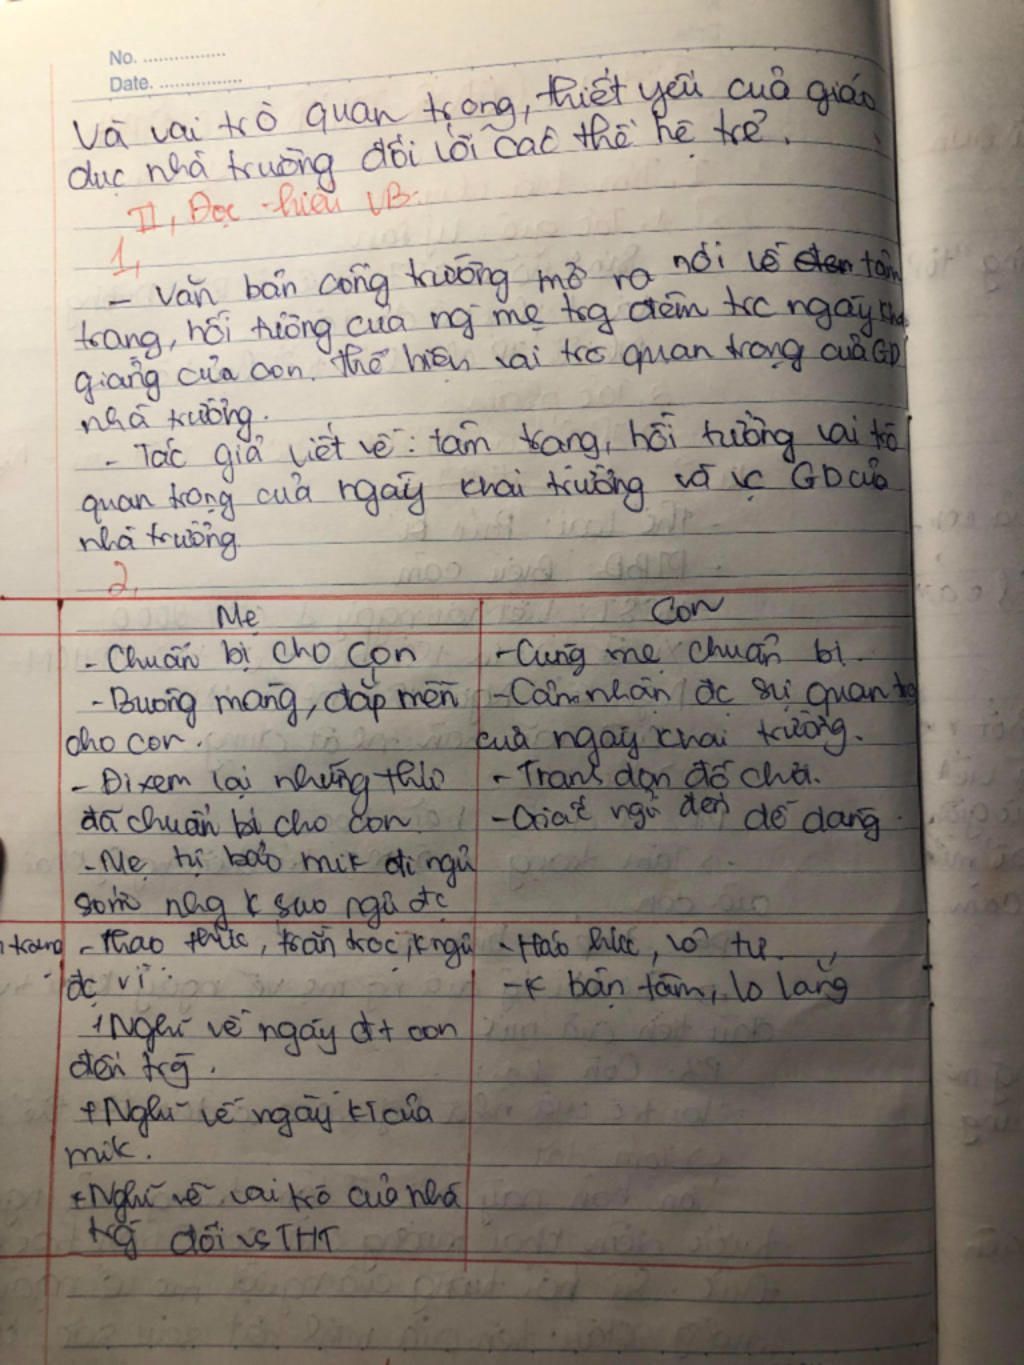 No. ................
Date. ................
Và vai trò quan trọng, thiết yếu của giáo
dục nhà trường đối với các thế hệ trẻ.
II, Đọc - hiểu VB.
1,
- Văn bản cổng trường mở ra nói về tâm
trạng, hồi tưởng của ng mẹ trg đêm trc ngày khai
giảng của con. thể hiện vai trò quan trọng của GD
nhà trường.
- Tác giả viết về: tâm trạng, hồi tưởng vai trò
quan trọng của ngày khai trường và vc GD của
nhà trường.
2,
Mẹ
Con
- Chuẩn bị cho con
- Buông màng, đắp mền
cho con.
- Đi xem lại những thứ
đã chuẩn bị cho con.
- Mẹ tự bảo mik đi ngủ
sớm nhg k sao ngủ đc
- Cùng mẹ chuẩn bị.
- Cảm nhận đc sự quan trg
của ngày khai trường.
- Tranh dọn đồ chơi.
- Giấc ngủ đến dễ dàng.
trạng
- Thao thức, trằn trọc, k ngủ
đc vì:
+ Nghĩ về ngày đt con
đến trg.
+ Nghĩ về ngày kt của
mik.
+ Nghĩ về vai trò của nhà
trg đối vs THT
- Háo hức, vô tư.
- K bận tâm, lo lắng